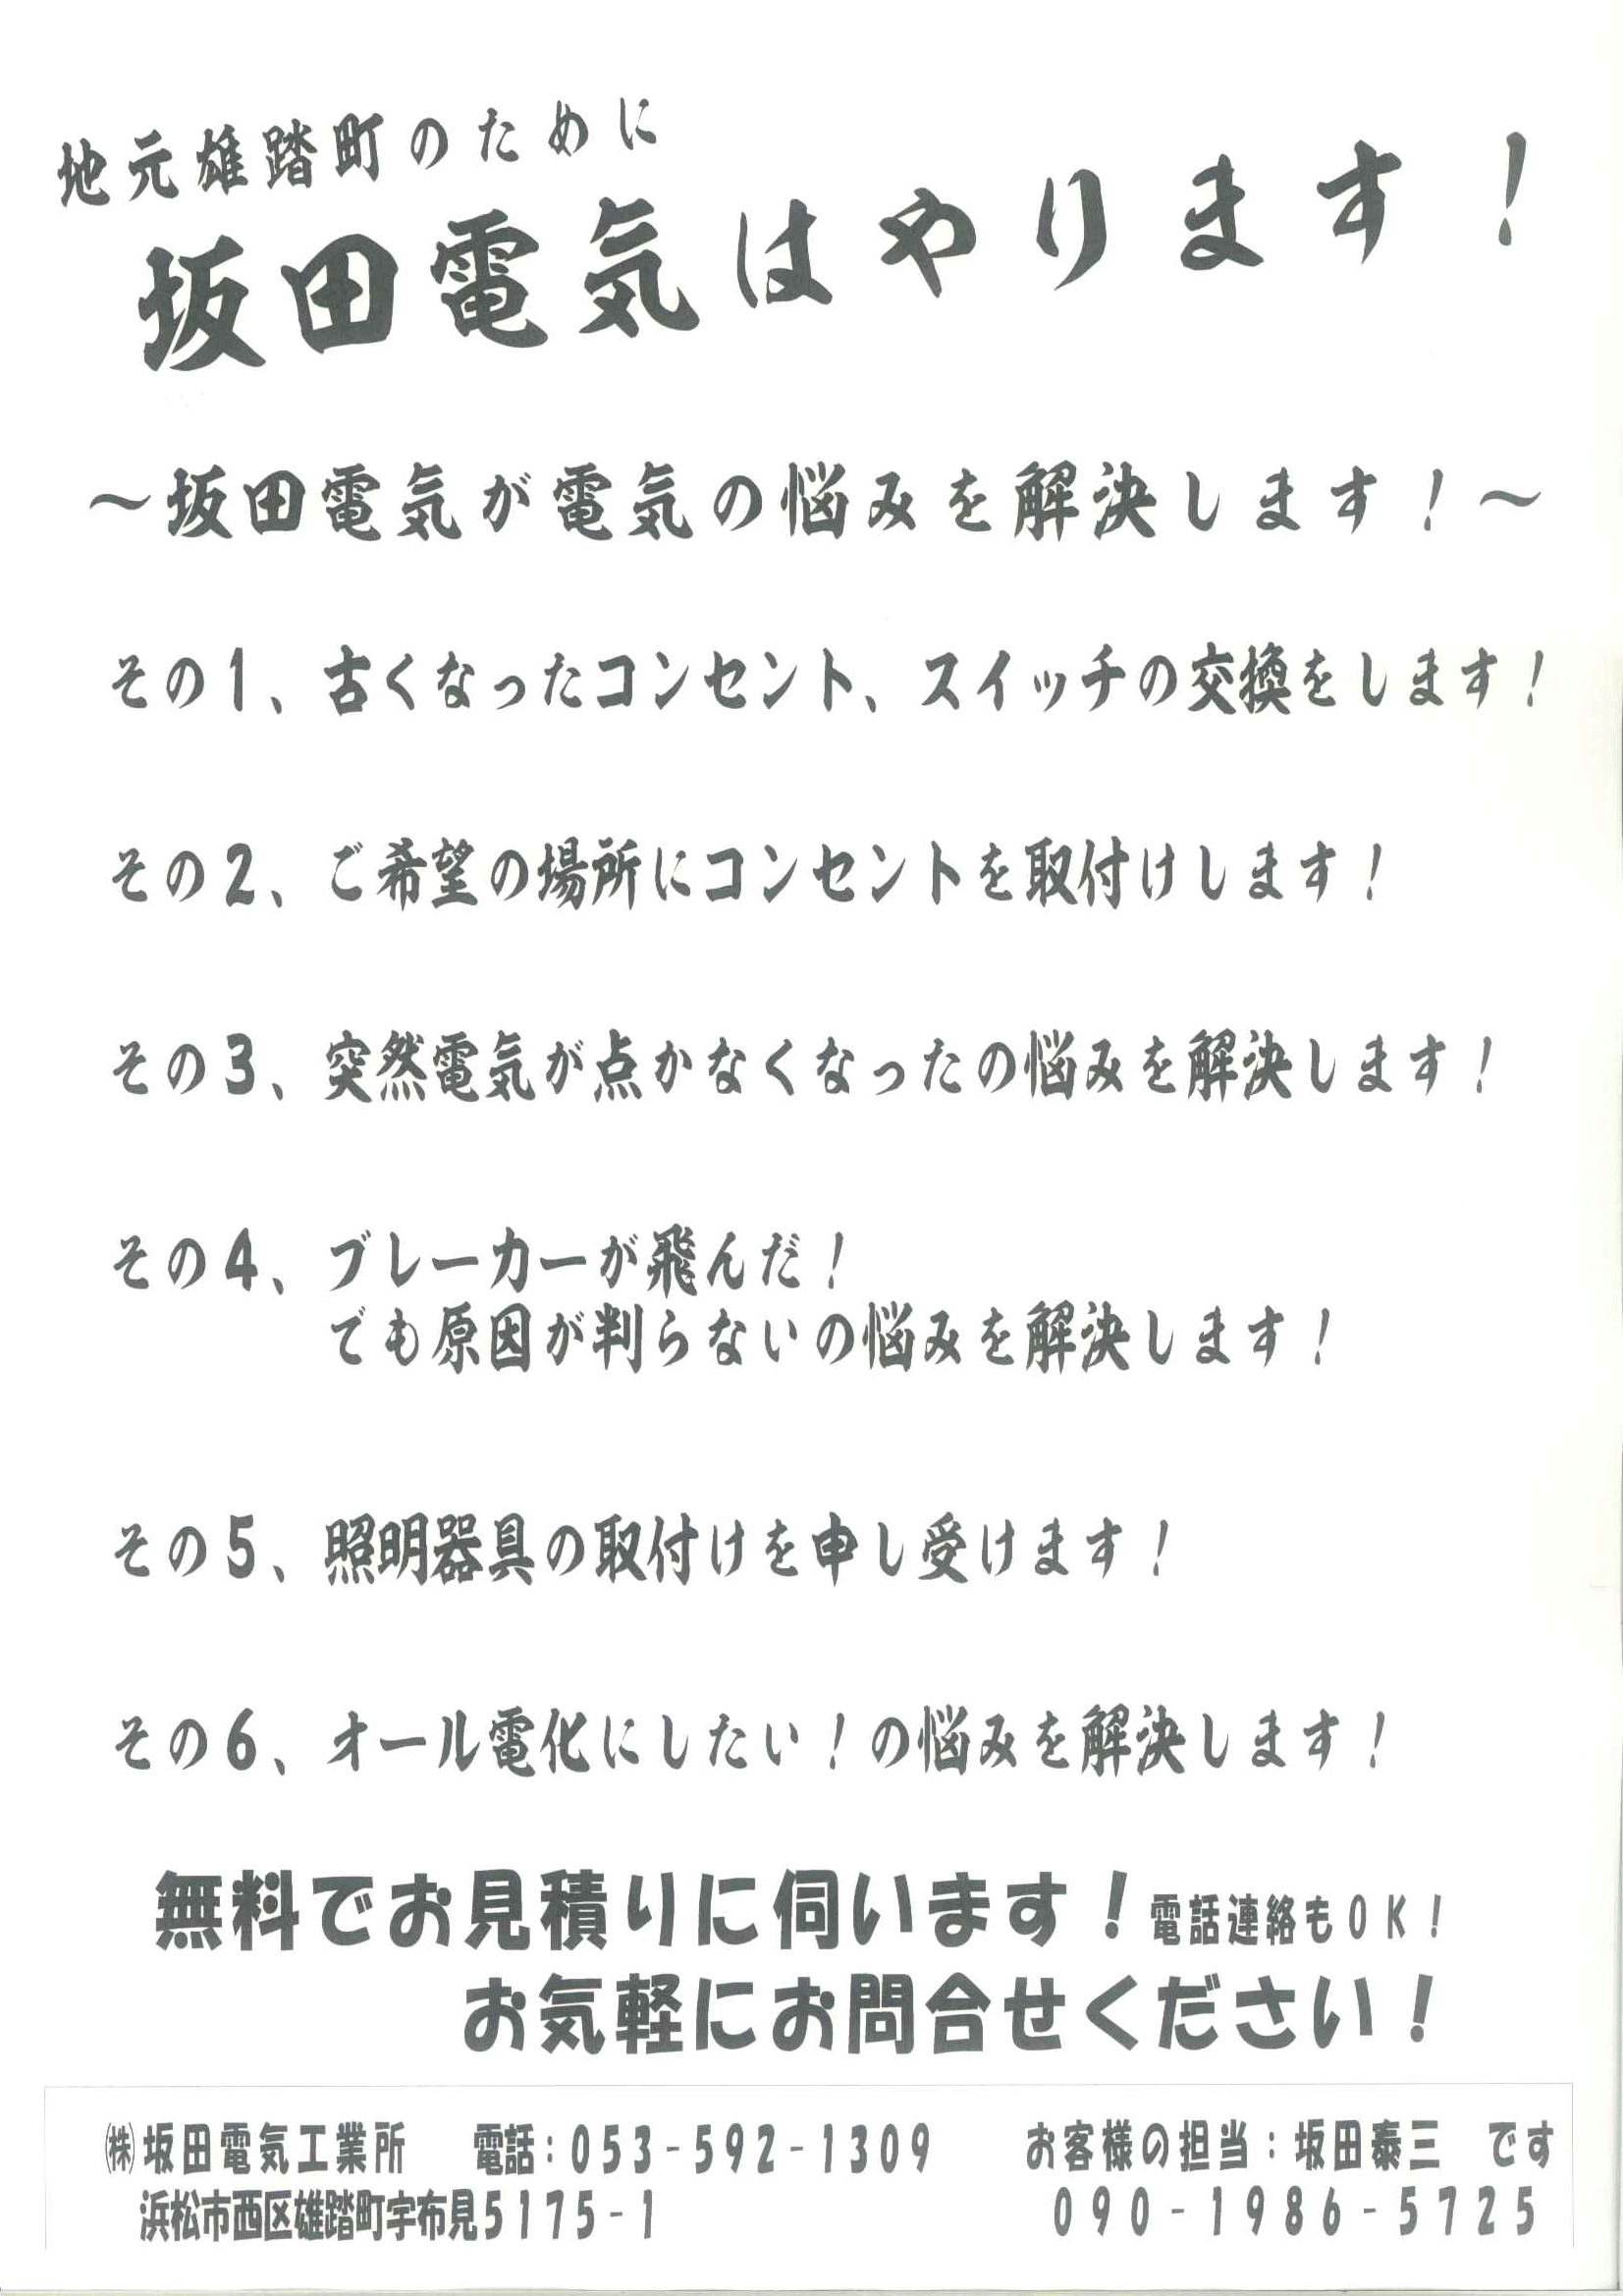 地元雄踏町のために
坂田電気はやります！
～坂田電気が電気の悩みを解決します！～
その１、古くなったコンセント、スイッチの交換をします！
その２、ご希望の場所にコンセントを取付けします！
その３、突然電気が点かなくなったの悩みを解決します！
その４、ブレーカーが飛んだ！
でも原因が判らないの悩みを解決します！
その５、照明器具の取付けを申し受けます！
その６、オール電化にしたい！の悩みを解決します！
無料でお見積りに伺います！電話連絡もＯＫ！
お気軽にお問合せください！
㈱坂田電気工業所　電話：０５３－５９２－１３０９　お客様の担当：坂田泰三　です
浜松市西区雄踏町宇布見５１７５－１　０９０－１９８６－５７２５